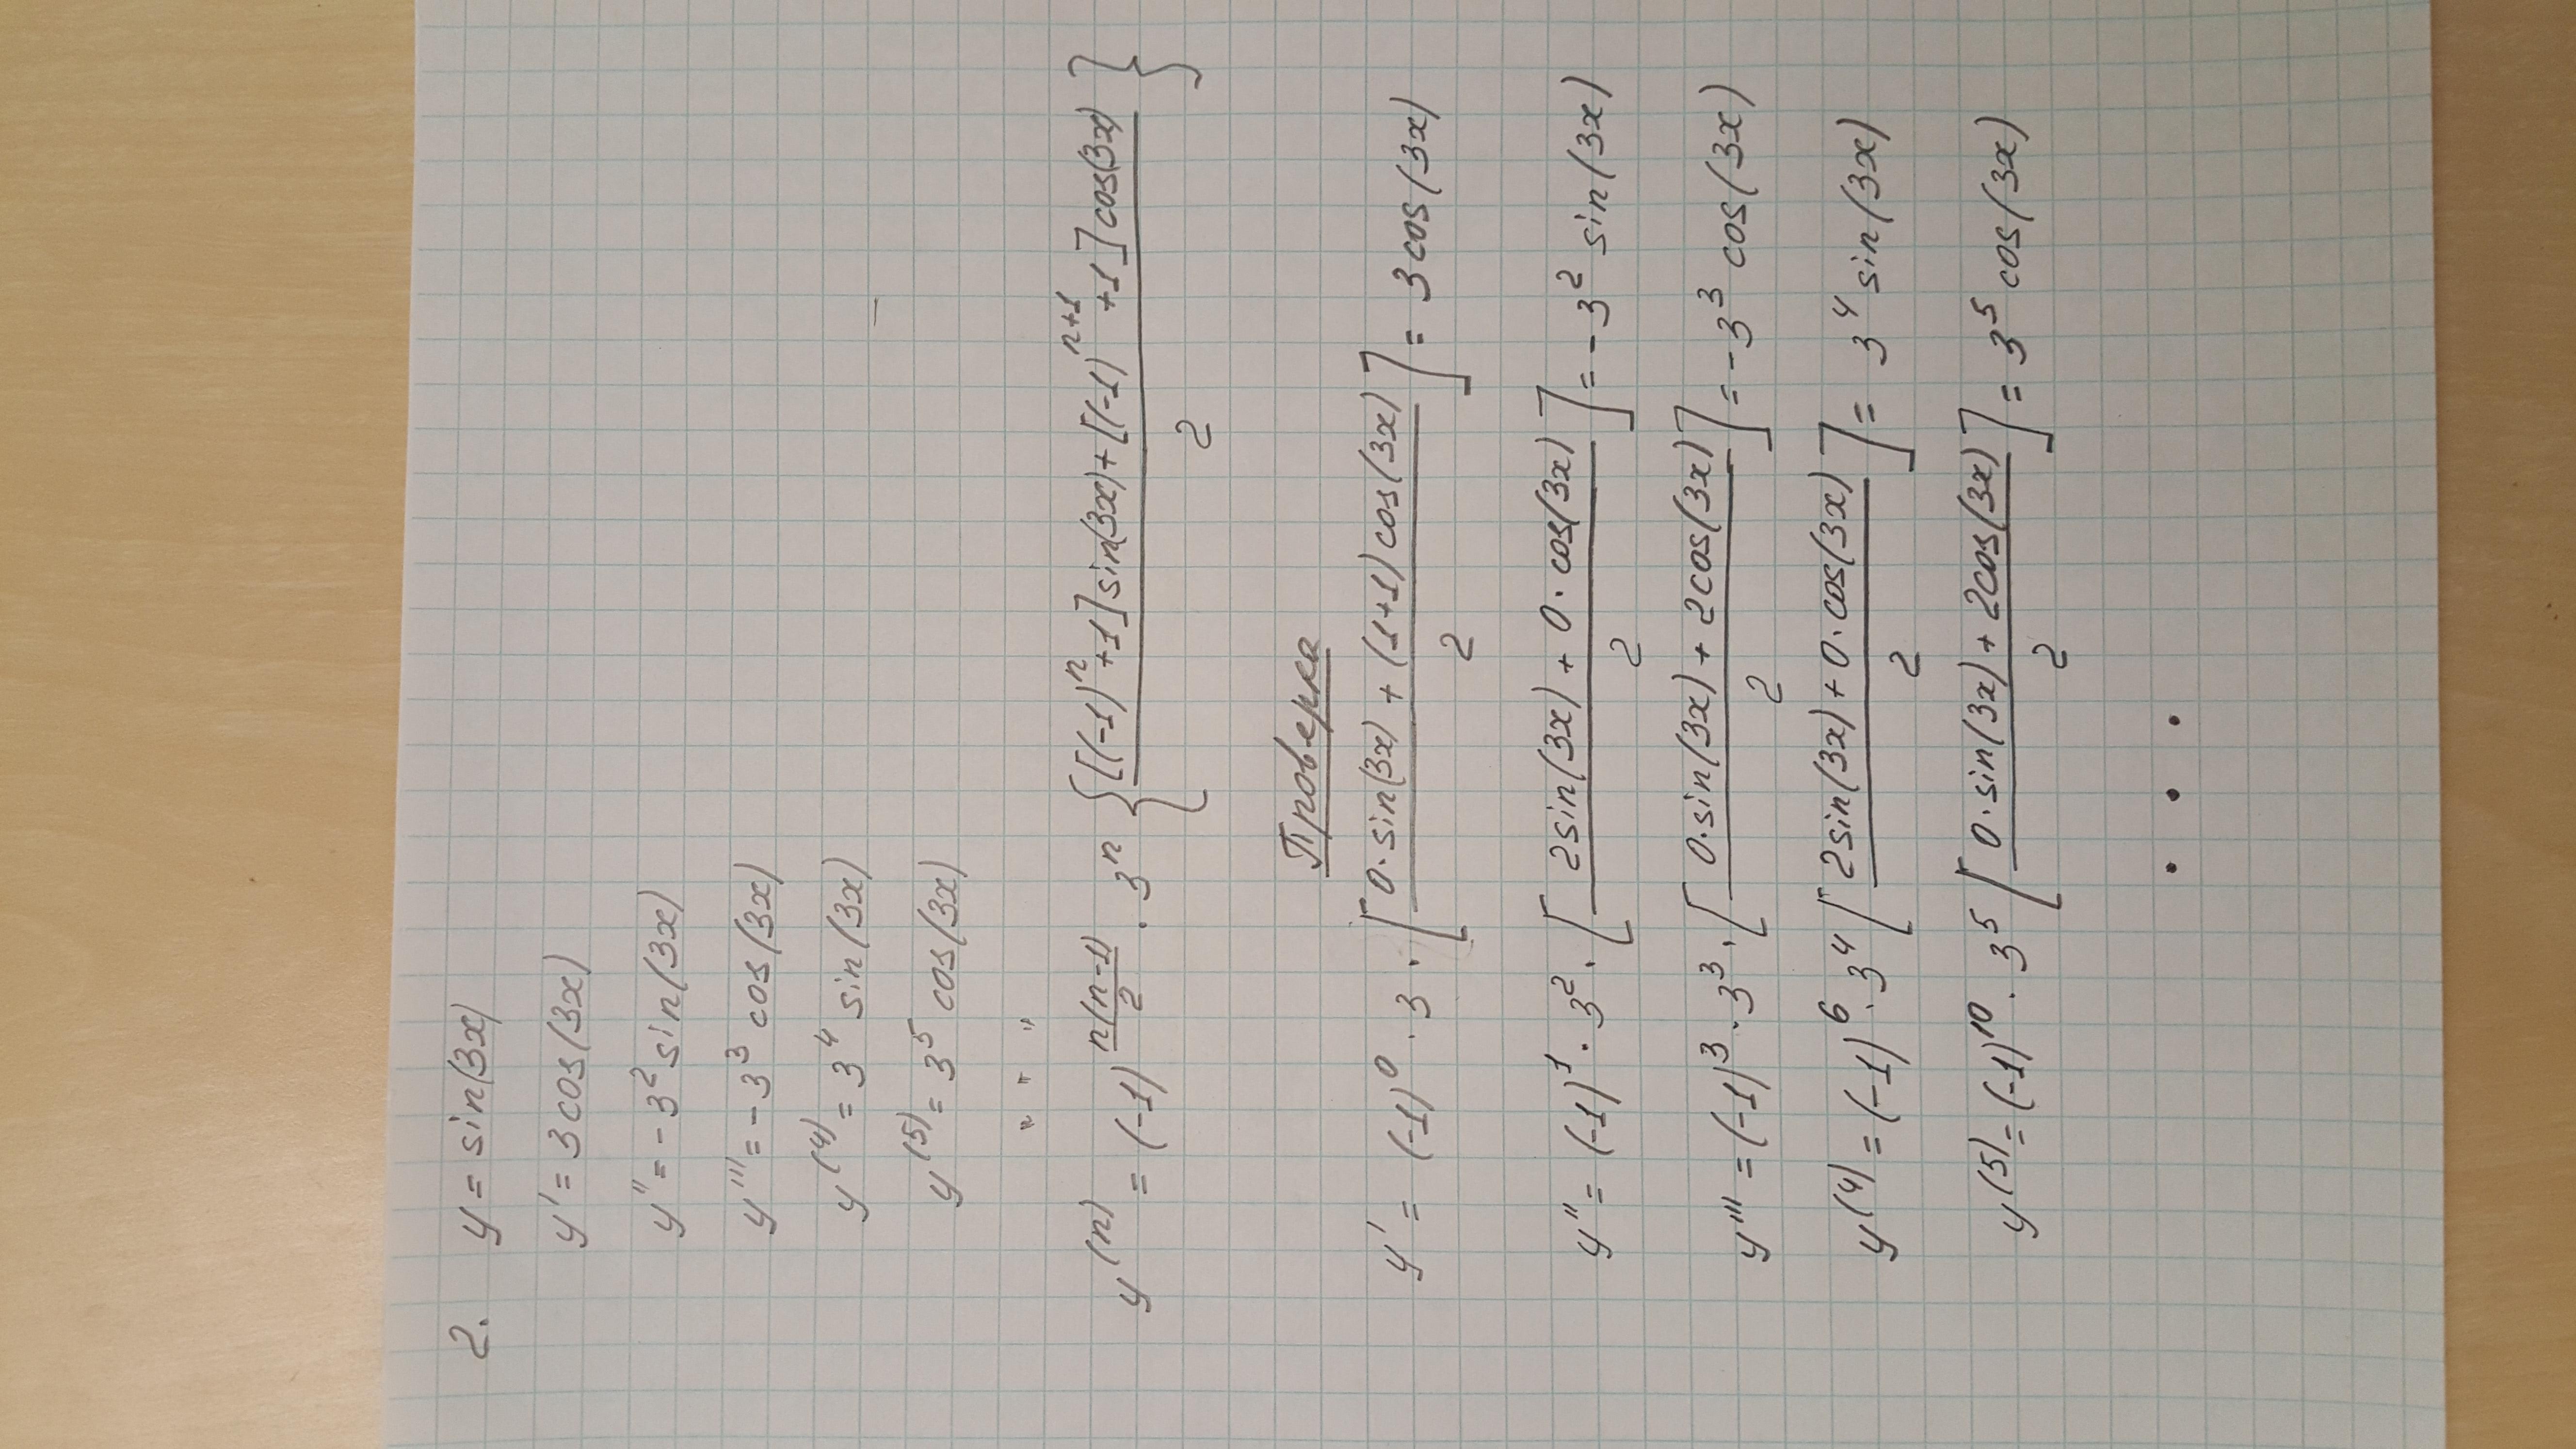 2. y = sin(3x)
y' = 3cos(3x)
y'' = -3² sin(3x)
y''' = -3³ cos(3x)
y⁽⁴⁾ = 3⁴ sin(3x)
y⁽⁵⁾ = 3⁵ cos(3x)
" " "
y⁽ⁿ⁾ = (-1)^(n(n-1)/2) · 3ⁿ {([(-1)ⁿ+1]sin(3x)+[(-1)ⁿ⁺¹+1]cos(3x))/2}
Проверка
y' = (-1)⁰ · 3 · [(0·sin(3x) + (1+1)cos(3x))/2] = 3cos(3x)
y'' = (-1)¹ · 3² · [(2sin(3x) + 0·cos(3x))/2] = -3² sin(3x)
y''' = (-1)³ · 3³ · [(0·sin(3x) + 2cos(3x))/2] = -3³ cos(3x)
y⁽⁴⁾ = (-1)⁶ · 3⁴ [(2sin(3x) + 0·cos(3x))/2] = 3⁴ sin(3x)
y⁽⁵⁾ = (-1)¹⁰ · 3⁵ [(0·sin(3x) + 2cos(3x))/2] = 3⁵ cos(3x)
. . .